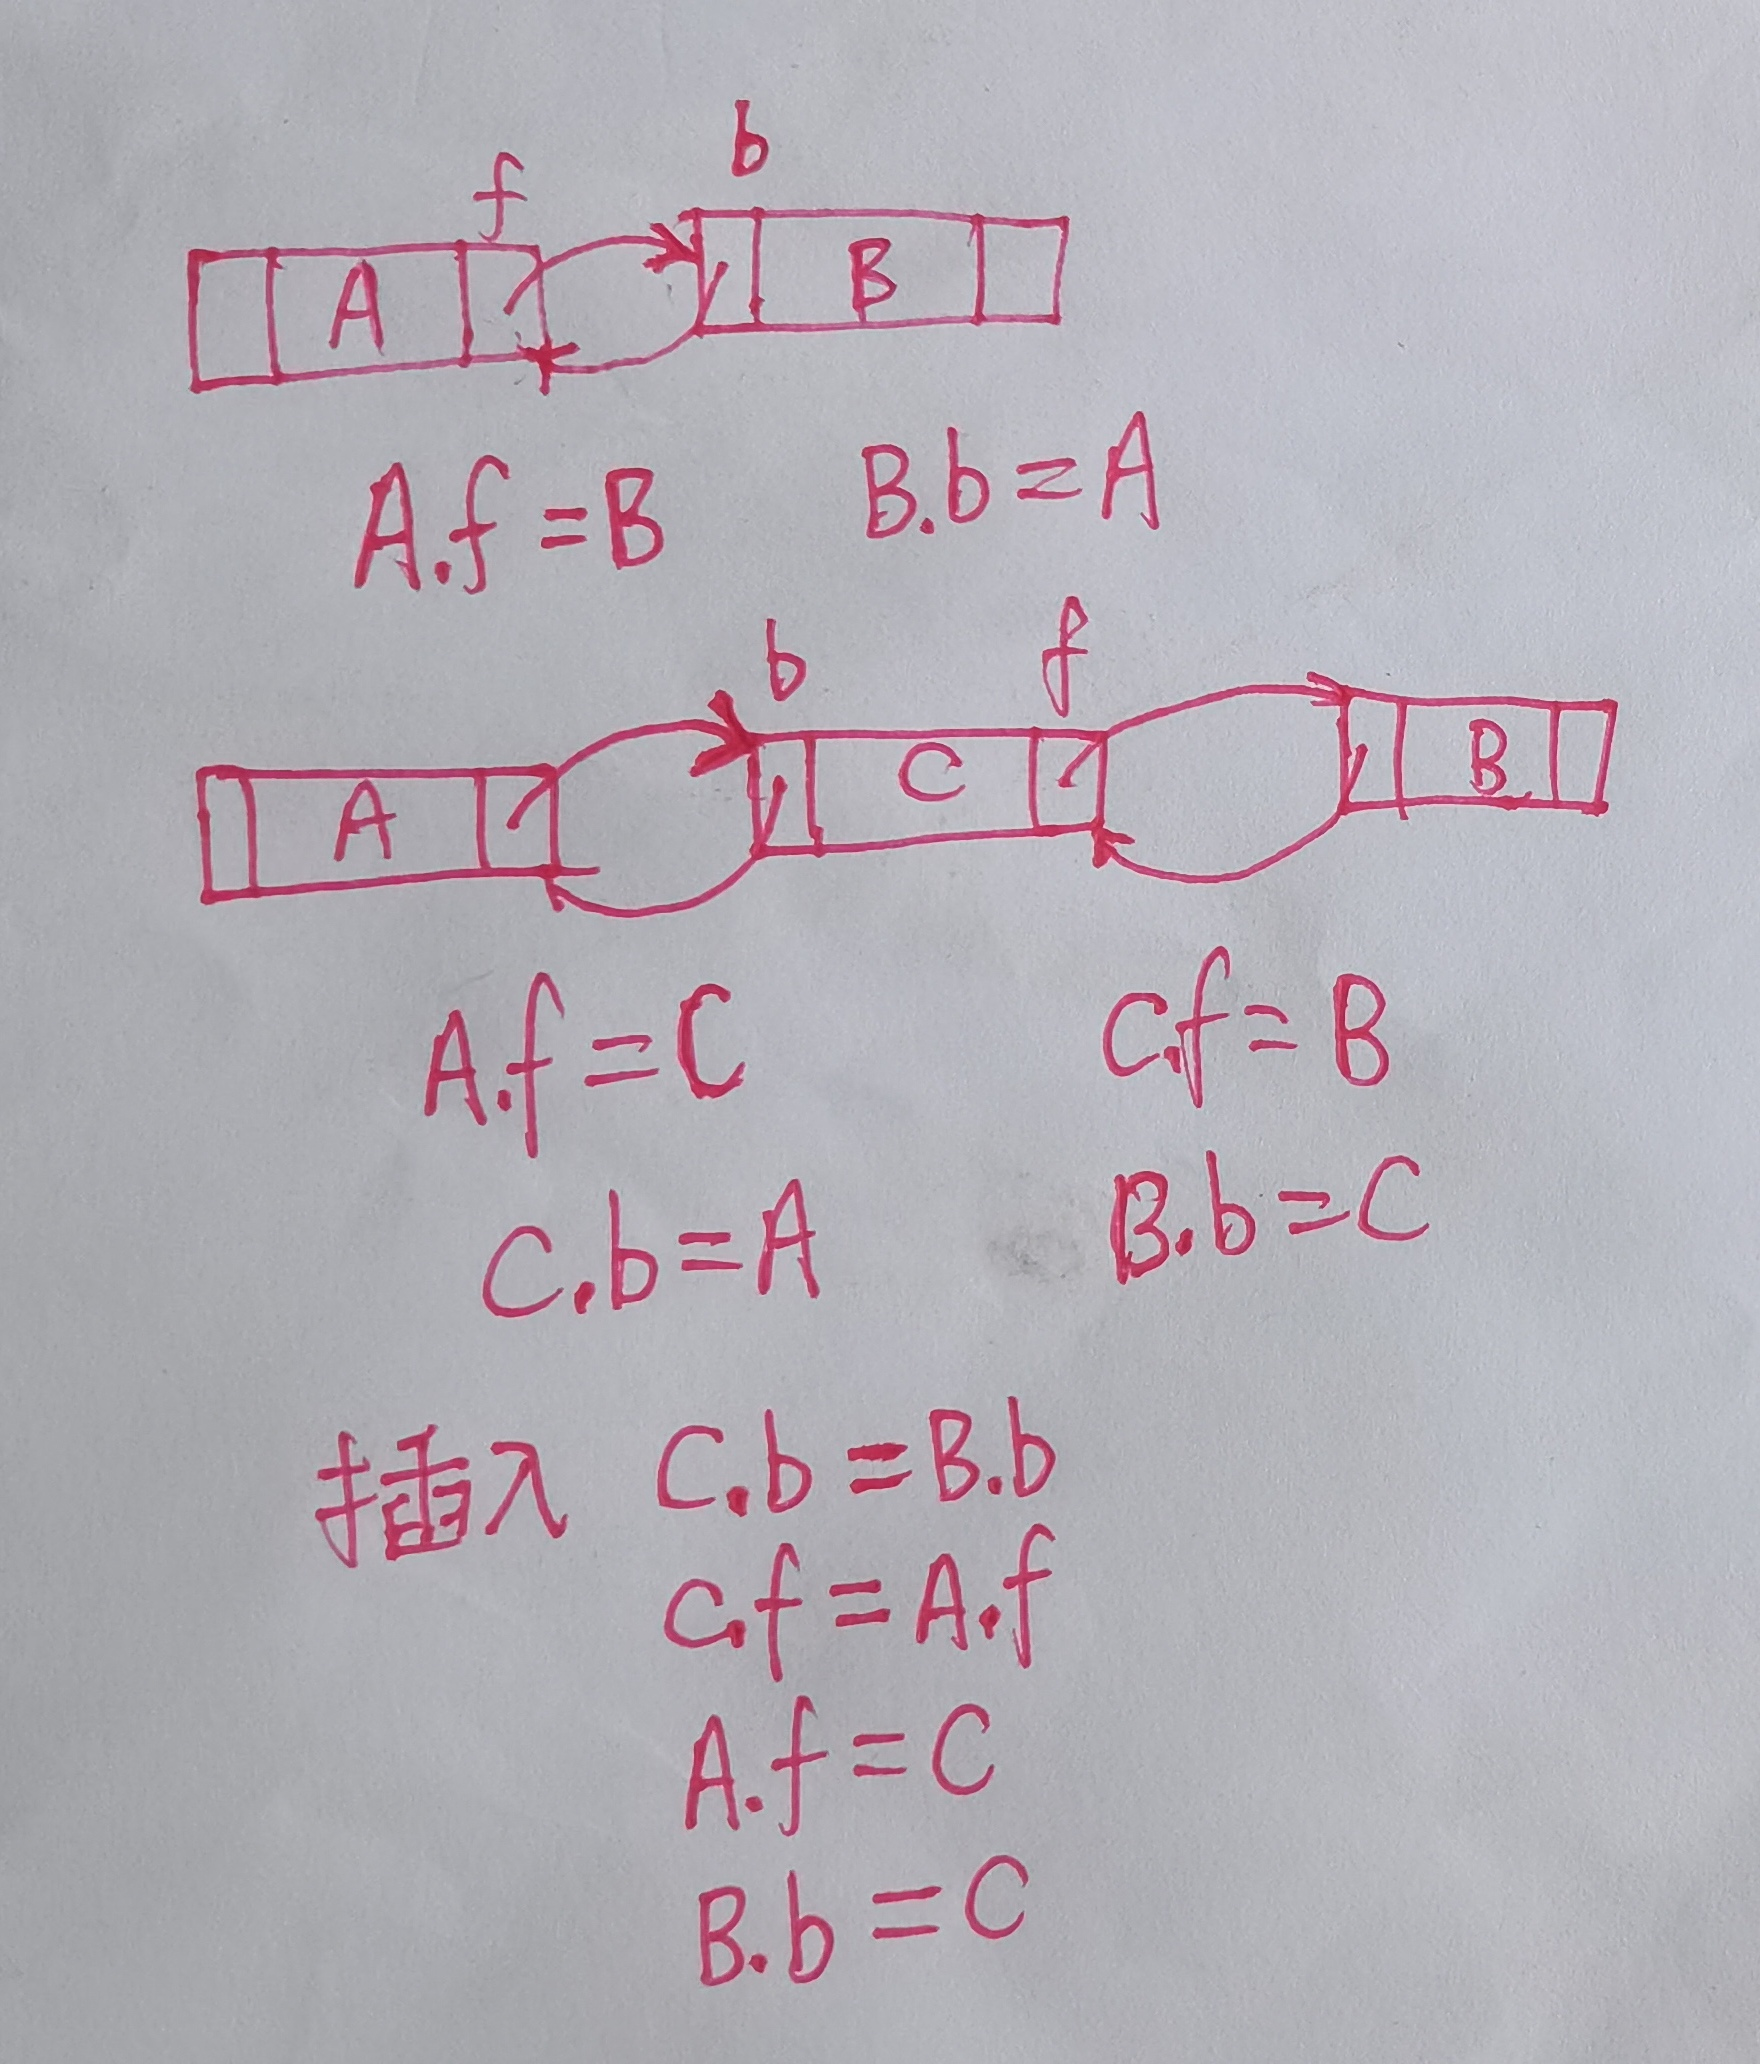 f b
A B
A.f=B B.b=A
b f
A C B
A.f=C C.f=B
C.b=A B.b=C
插入 C.b=B.b
C.f=A.f
A.f=C
B.b=C